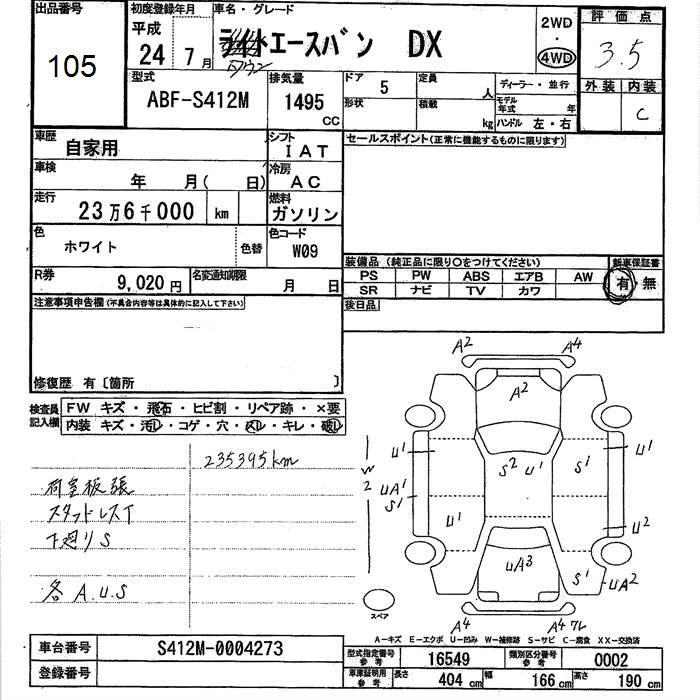 出品番号
105
初度登録年月
平成
24年7月
車名・グレード
エースバン DX
タウン
2WD
・
4WD
評価点
3.5
外装 内装
C
型式
ABF-S412M
排気量
1495
CC
ドア 5
形状
定員 人
積載 kg
ディーラー・並行
モデル年式 年
ハンドル 左・右
車歴
自家用
シフト
IAT
車検
年 月( 日)
冷房
AC
走行
23万6千000 km
燃料
ガソリン
色
ホワイト
色替
色コード
W09
R券
9,020円
名変通知期限
月 日
セールスポイント(正常に機能するものに限ります)
装備品 (純正品に限り○をつけてください)
新車保証書
PS PW ABS エアB AW
SR ナビ TV カワ
有・無
後日品
注意事項申告欄(不具合内容等は具体的に記入して下さい)
修復歴 有〔箇所 〕
検査員
記入欄
FW キズ・飛石・ヒビ割・リペア跡・×要
内装 キズ・汚レ・コゲ・穴・スレ・キレ・破レ
235395km
荷室板張
スタッドレスT
下廻りS
各 A.U.S
A2 A4
A2
U1
S2 U1
S1
U1
W2
UA1
S1
U1
U2
UA3
S1
UA2
スペア
A4
A4 ワレ
A-キズ E-エクボ U-凹み W-補修跡 S-サビ C-腐食 XX-交換済
車台番号
S412M-0004273
登録番号
型式指定番号
参考
16549
類別区分番号
参考
0002
車庫証明用
参考
長さ 404 cm
幅 166 cm
高さ 190 cm